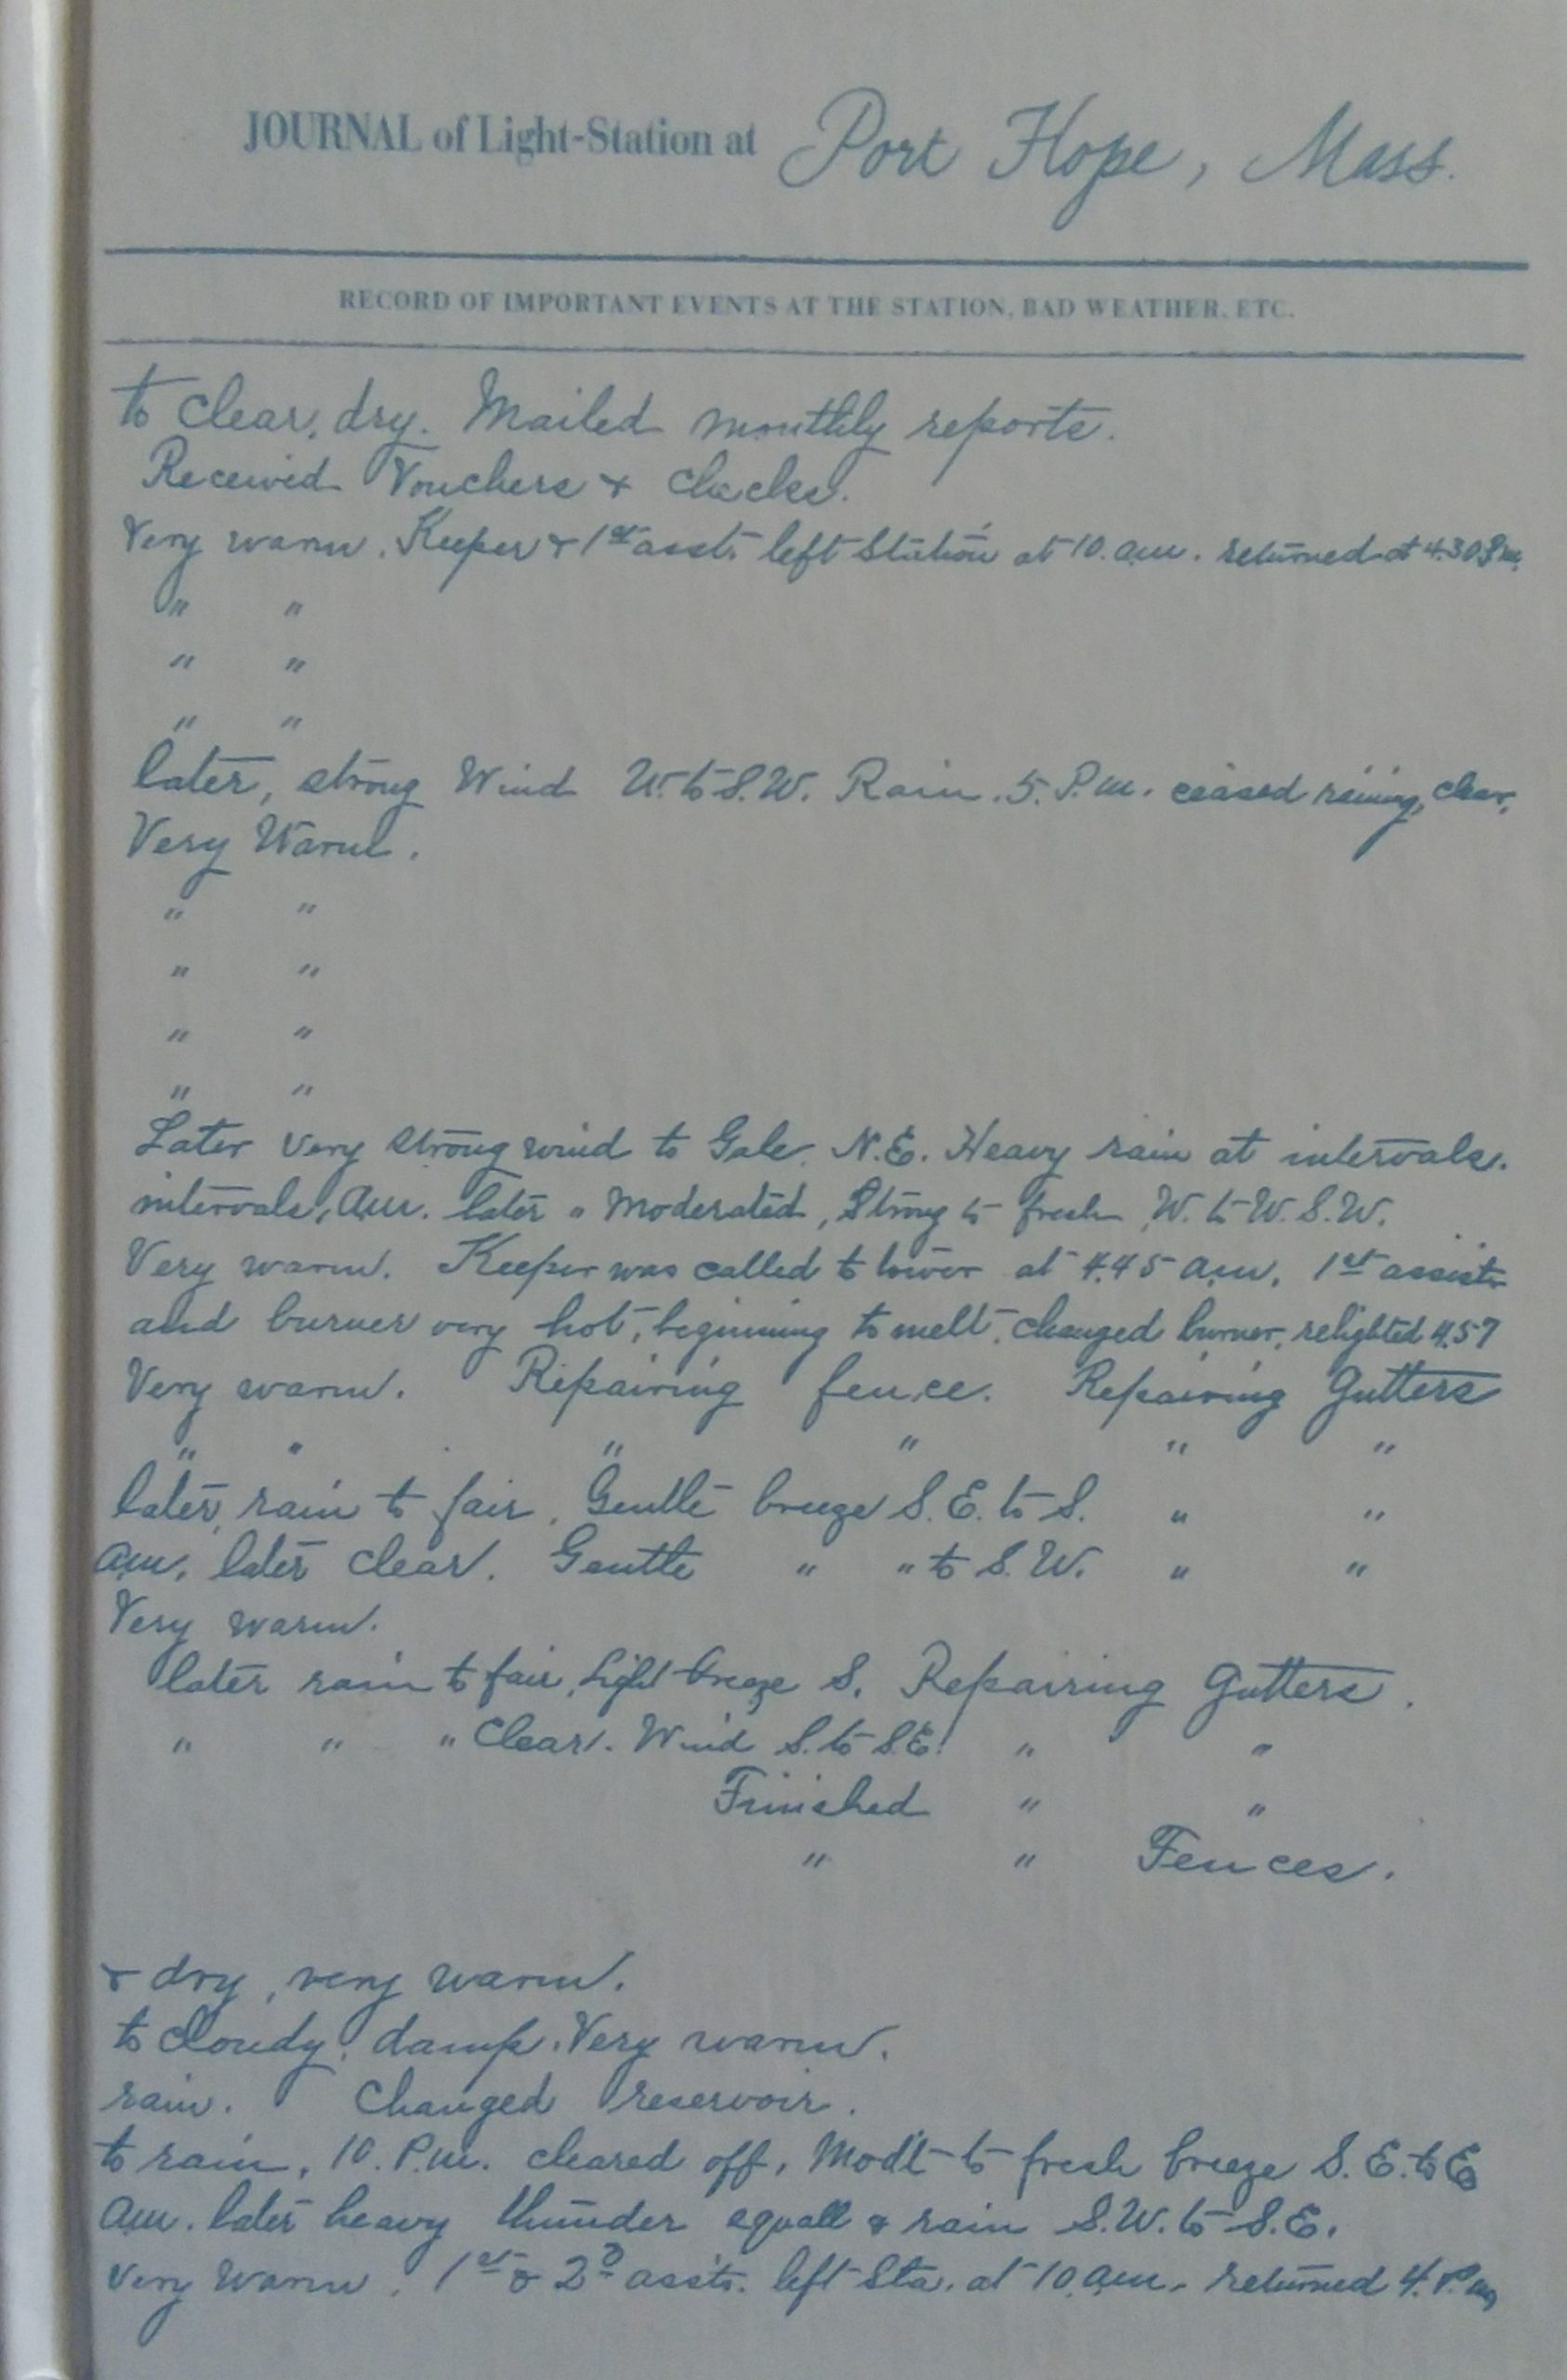 JOURNAL of Light-Station at Port Hope, Mass.
RECORD OF IMPORTANT EVENTS AT THE STATION, BAD WEATHER, ETC.
to Clear, dry. Mailed monthly reports.
Received Vouchers & Checks.
Very warm. Keeper & 1st asst. left Station at 10. am. returned at 4.30 P.m.
" "
" "
" "
later, strong Wind W. to S.W. Rain. 5. P.m. ceased raining, clear.
Very Warm.
" "
" "
" "
" "
Later very strong wind to Gale. N.E. Heavy rain at intervals.
intervals, am. later " moderated, Strong to fresh W. to W.S.W.
Very warm. Keeper was called to tower at 4.45 a.m. 1st assist.
and burner very hot, beginning to melt. changed burner, relighted 4.57
Very warm. Repairing fence. Repairing Gutters
" " " " " "
later, rain to fair. Gentle breeze S.E. to S. " "
am. later clear. Gentle " " to S.W. " "
Very warm.
later rain to fair, Light breeze S. Repairing Gutters.
" " " Clear. Wind S. to S.E. " "
Finished " "
" " Fences.
& dry, very warm.
to Cloudy, damp. Very warm.
rain. Changed reservoir.
to rain, 10. P.m. cleared off, Modt to fresh breeze S.E. to E
am. later heavy thunder squall & rain S.W. to S.E.
Very Warm. 1st & 2d assts. left Sta. at 10 a.m. returned 4. P.m,